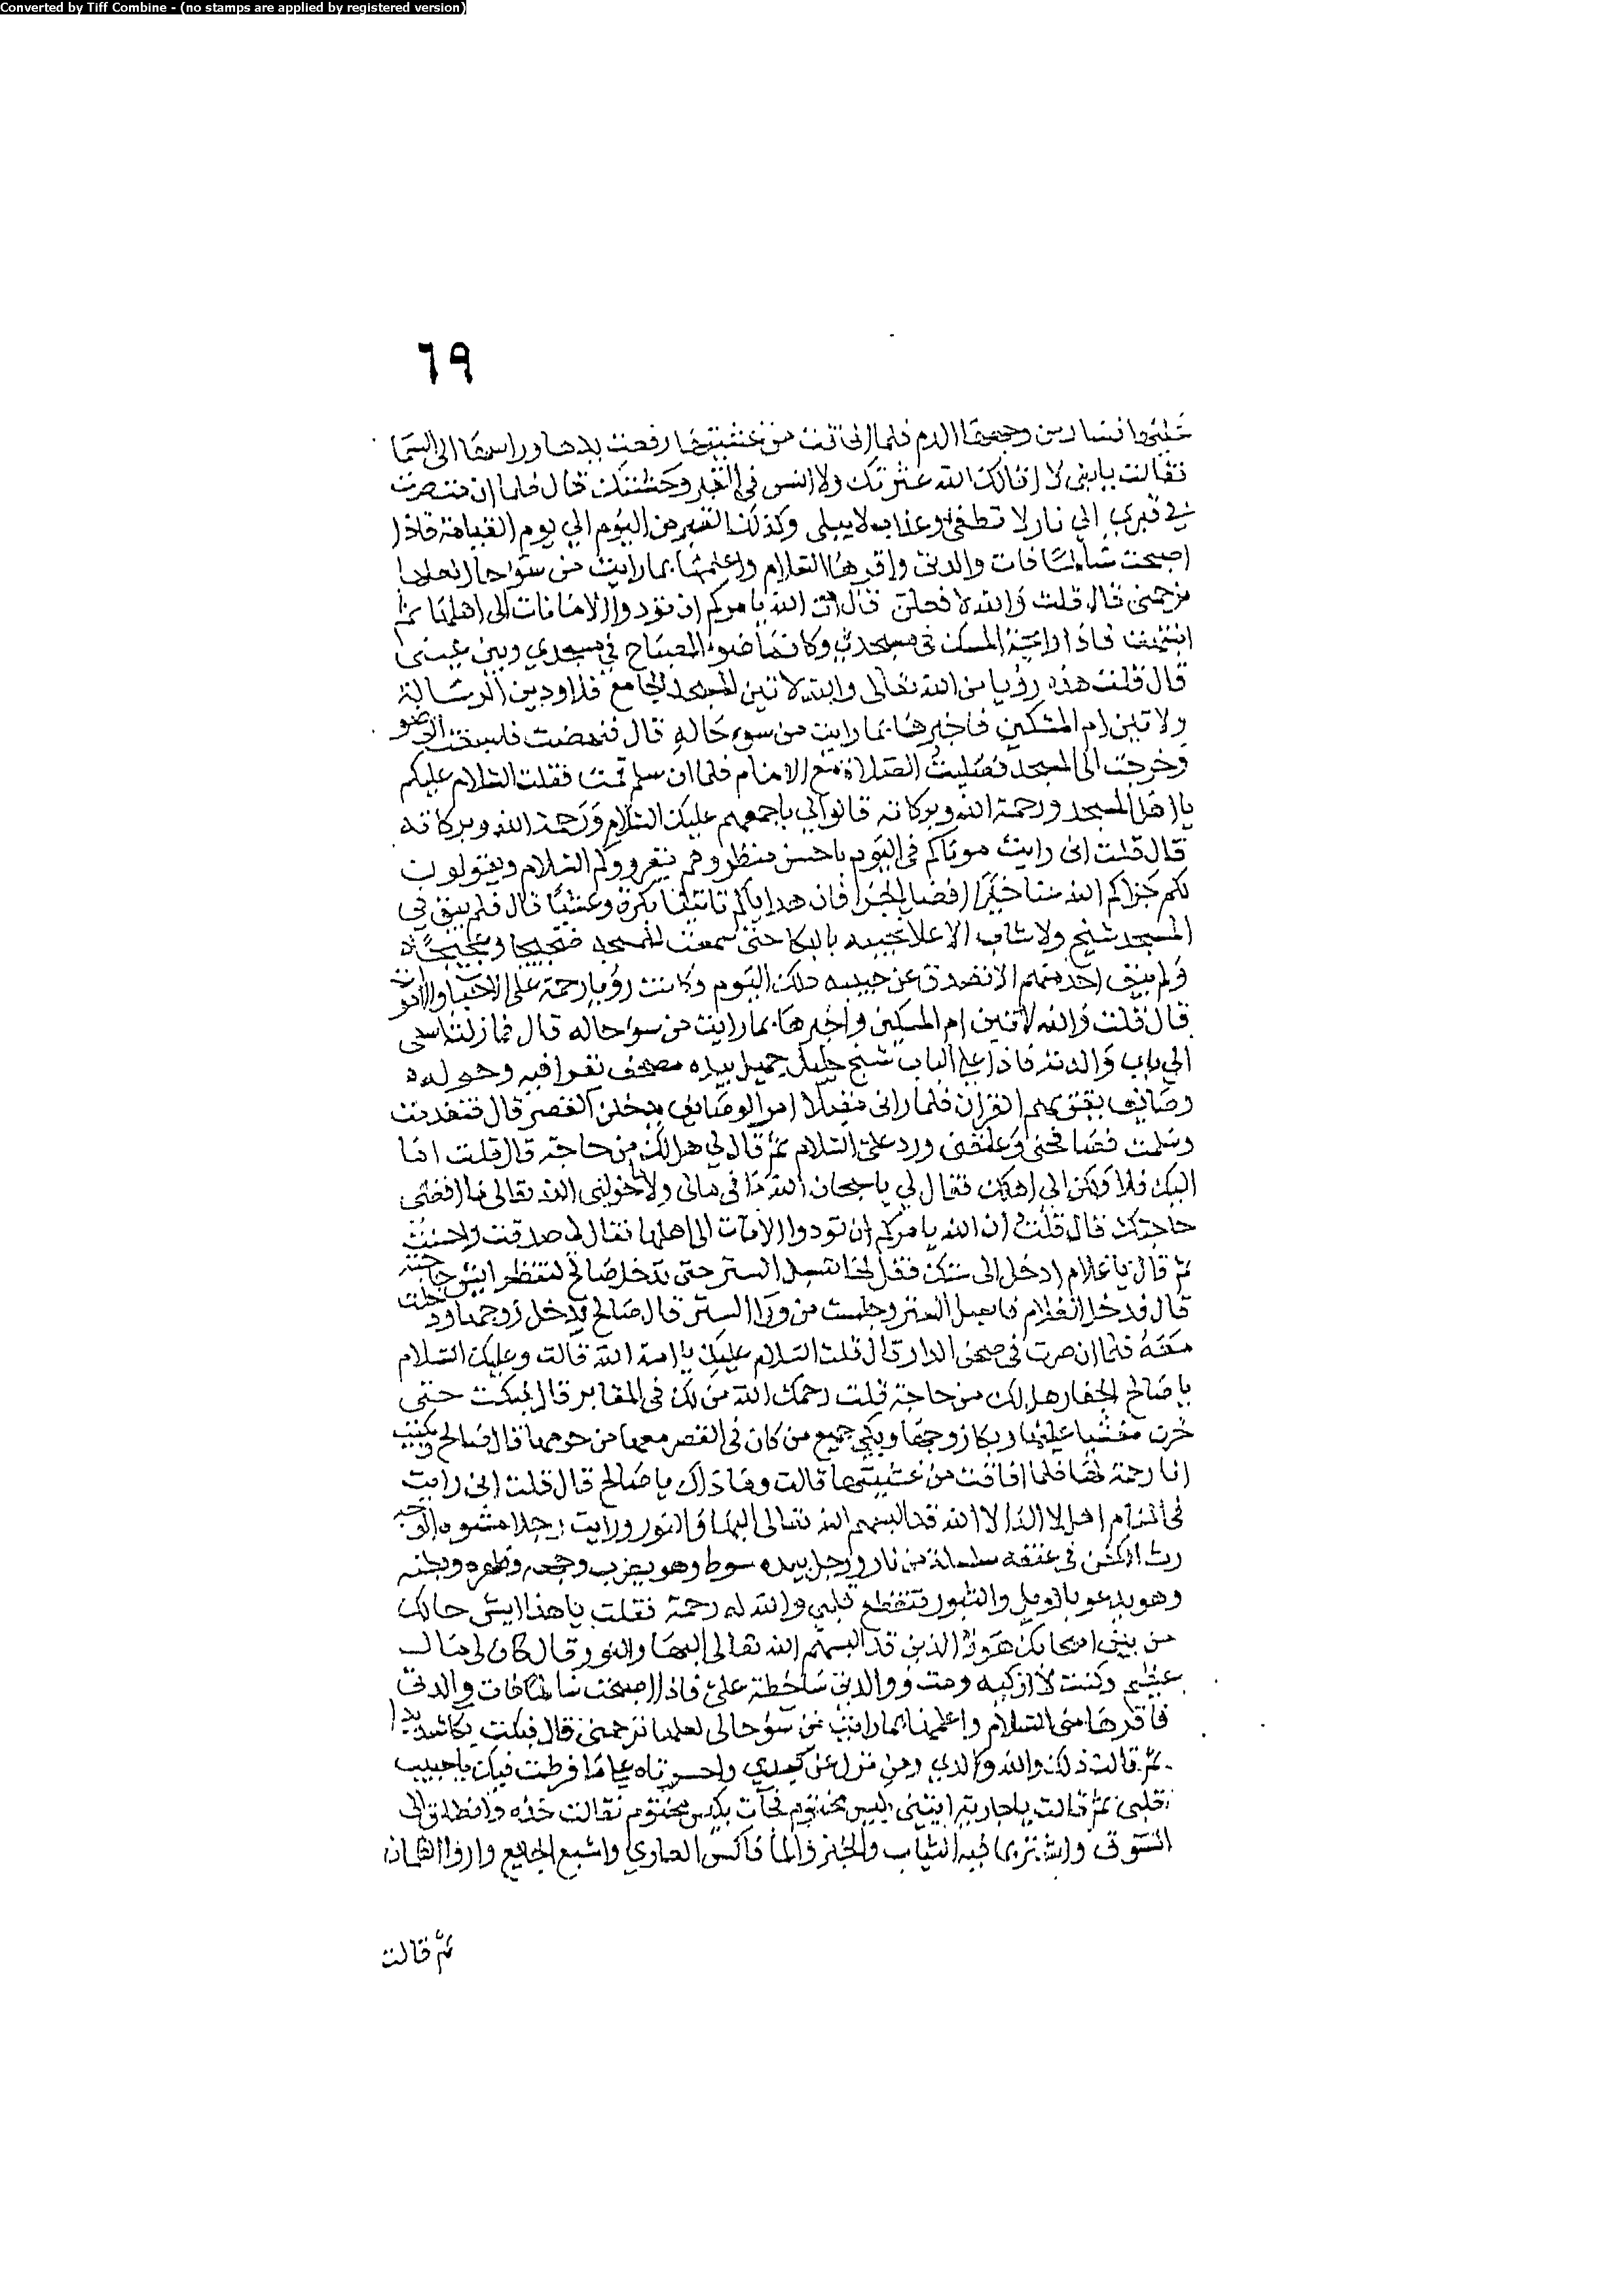 Converted by Tiff Combine - (no stamps are applied by registered version)
٦٩
وجهها الدم فلما ان رفعت يدها وراسها الى السما
فقالت يابنى لا اقالك الله عثرتك ولا انس فى القبر وحشتك قال فلما ان صرت
في قبري الي نار لا تطفى وعذاب لا يبلى وكذلك من اليوم الي يوم القيامة فاذا
اصبحت والدتى واقرها السلام واعلمها بما رايت من سو حالى لعلها
ترحمنى قال قلت والله لافعلن قال ان الله يامركم ان تودوا الامانات الى اهلها ثم
انتبهت فاذا رايحة المسك فى مسجدي وكانما ضوء المصباح في مسجدي وبين عينى
قال قلت هذه رؤيا من الله تعالى والله لاتين المسجد الجامع فلاودين الرسالة
ولاتين ام المسكين فاخبرها بما رايت من سوء حاله قال فنهضت
وخرجت الى المسجد فصليت الصلاة مع الامام فلما ان سلم قمت فقلت السلام عليكم
يا اهل المسجد ورحمة الله وبركاته قالوا لي باجمعهم عليك السلام ورحمة الله وبركاته
قال قلت انى رايت موتاكم فى اليوم باحسن منظر وهم يقرووكم السلام ويقولون
لكم جزاكم الله عنا خيرا افضل الجزا فان هداياكم تاتينا بكرة وعشيا قال فلم يبق في
المسجد شيخ ولا شاب الا علا نحيبه بالبكا حتى سمعت للمسجد ضجيجا
ولم يبق احد منهم الا تصدق عن حبيبه ذلك اليوم وكانت رؤيا رحمة على الاحيا والاموات
قال قلت والله لاتين ام المسكين واخبرها بما رايت من سو حاله قال فما زلت اسعى
الي باب والدته فاذا علي الباب شيخ جليل جميل بيده مصحف يقرا فيه وحوله
وصايف القران فلما رانى مقبلا امر الوصايف يدخلن القصر قال فتقدمت
وسلمت فصافحنى وعانقنى ورد على السلام ثم قال لي هل لك من حاجة قال قلت اما
اليك فلا ولكن الي اهلك فقال لي يا سبحان الله
حاجتك قال قلت ان الله يامركم ان تودوا الامانات الى اهلها فقال لى صدقت واحسنت
ثم قال يا غلام ادخل الى ستك فقل لها تسبل الستر حتى يدخل صالح لتنظر ايش حاجته
قال فدخل الغلام فاسبل الستر وجلست من ورا الستر قال صالح فدخل زوجها ودخلت
معه فلما ان صرت فى صحن الدار قال قلت السلام عليك يا امة الله قالت وعليك السلام
يا صالح الحفار هل لك من حاجة قلت رحمك الله من لك فى المقابر قال فبكت حتى
خرت مغشيا عليها وبكا زوجها وبكي جميع من كان فى القصر معها من حرمها قال صالح وبكيت
انا رحمة لها فلما افاقت من غشيتها قالت وما ذاك يا صالح قال قلت انى رايت
فى المنام اهل لا اله الا الله قد البسهم الله تعالى البها والنور ورايت رجلا مشوه الوجه
رث الكفن فى عنقه سلسلة من نار ورجل بيده سوط وهو يضرب وجهه وظهره وبطنه
وهو يدعو بالويل والثبور فتقطع قلبي والله له رحمة فقلت يا هذا ايش حالك
من بين اصحابك هولا الذين قد البسهم الله تعالى البها والنور وقال كان لى مال
عظيم وكنت لا ازكيه ومت ووالدتى ساخطة على فاذا اصبحت والدتى
فاقرها منى السلام واعلمها بما رايت من سوحالى لعلها ترحمنى قال فبكت بكا شديدا
ثم قالت ذلك والله ولدي ومن نزل عن كبدي واحسرتاه على ما فرطت فيك يا حبيب
قلبى ثم قالت يا جارية ايتينى بكيس مختوم فجات بكيس مختوم فقالت خذه وانطلق الى
السوق واشترى فيه الثياب والخبز والما فاكس العاري واشبع الجايع واروا الظمان
ثم قالت